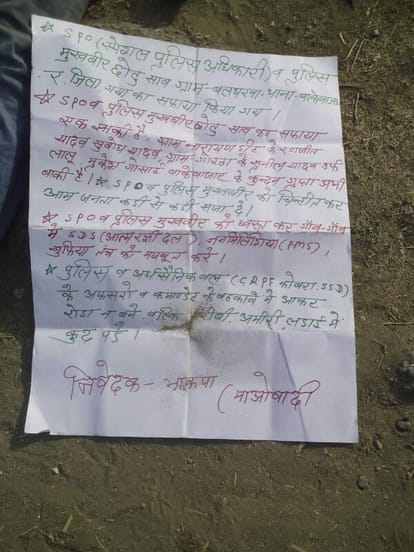 ★ SPO (स्पेशल पुलिस अधिकारी) व पुलिस
मुखबीर छोटु साव ग्राम- बलथरवा, थाना- बाकेबाजा
र. जिला गया का सफाया किया गया।
★ SPO व पुलिस मुखबीर छोटु साव का सफाया
एक झांकी है, ग्राम नारायणडीह के रणजीत
यादव सुबोध यादव, ग्राम- गोरहा के सुनील यादव उर्फ
लालू, मुकेश गोसाई बाकेबाजार के कुन्दन गुप्ता अभी
बाकी है। ★ SPO व पुलिस मुखबीर को चिन्हीत कर
आम जनता कड़ी से कड़ी सजा दें।
★ SPO व पुलिस मुखबीर को ध्वस्त कर गाँव-गाँव
में SDS (आत्मरक्षा दल), जनमिलिशिया (PMS),
खुफिया तंत्र को मजबूत करें।
★ पुलिस व अर्धसैनिक बल (CRPF कोबरा, SSB)
के अफसरों व कमाण्डेंट के बहकावे में आकर
रोड़ा न बनें बल्कि गरीबी, अमीरी लड़ाई में
कुद पड़े।
निवेदक - भाकपा (माओवादी